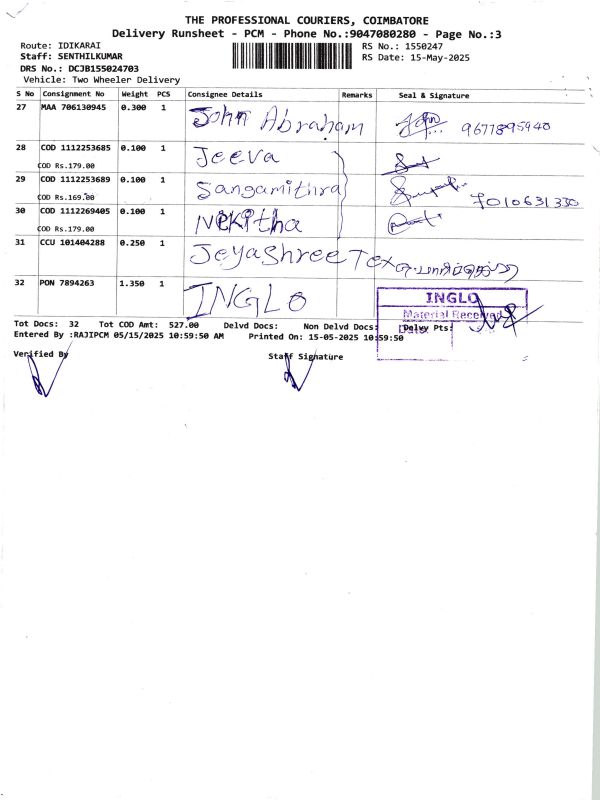 THE PROFESSIONAL COURIERS, COIMBATORE
Delivery Runsheet - PCM - Phone No.:9047080280 - Page No.:3
Route: IDIKARAI
RS No.: 1550247
Staff: SENTHILKUMAR
RS Date: 15-May-2025
DRS No.: DCJB155024703
Vehicle: Two Wheeler Delivery
S No Consignment No Weight PCS Consignee Details Remarks Seal & Signature
27 MAA 706130945 0.300 1 John Abraham 9677895940
28 COD 1112253685 0.100 1 Jeeva
COD Rs.179.00
29 COD 1112253689 0.100 1 Sangamithra 7010631330
COD Rs.169.00
30 COD 1112269405 0.100 1 Nikitha
COD Rs.179.00
31 CCU 101404288 0.250 1 Jeyashree Tex
32 PON 7894263 1.350 1 INGLO
INGLO
Material Received
Date:
Tot Docs: 32 Tot COD Amt: 527.00 Delvd Docs: Non Delvd Docs: Delvy Pts:
Entered By :RAJIPCM 05/15/2025 10:59:50 AM Printed On: 15-05-2025 10:59:50
Verified By Staff Signature